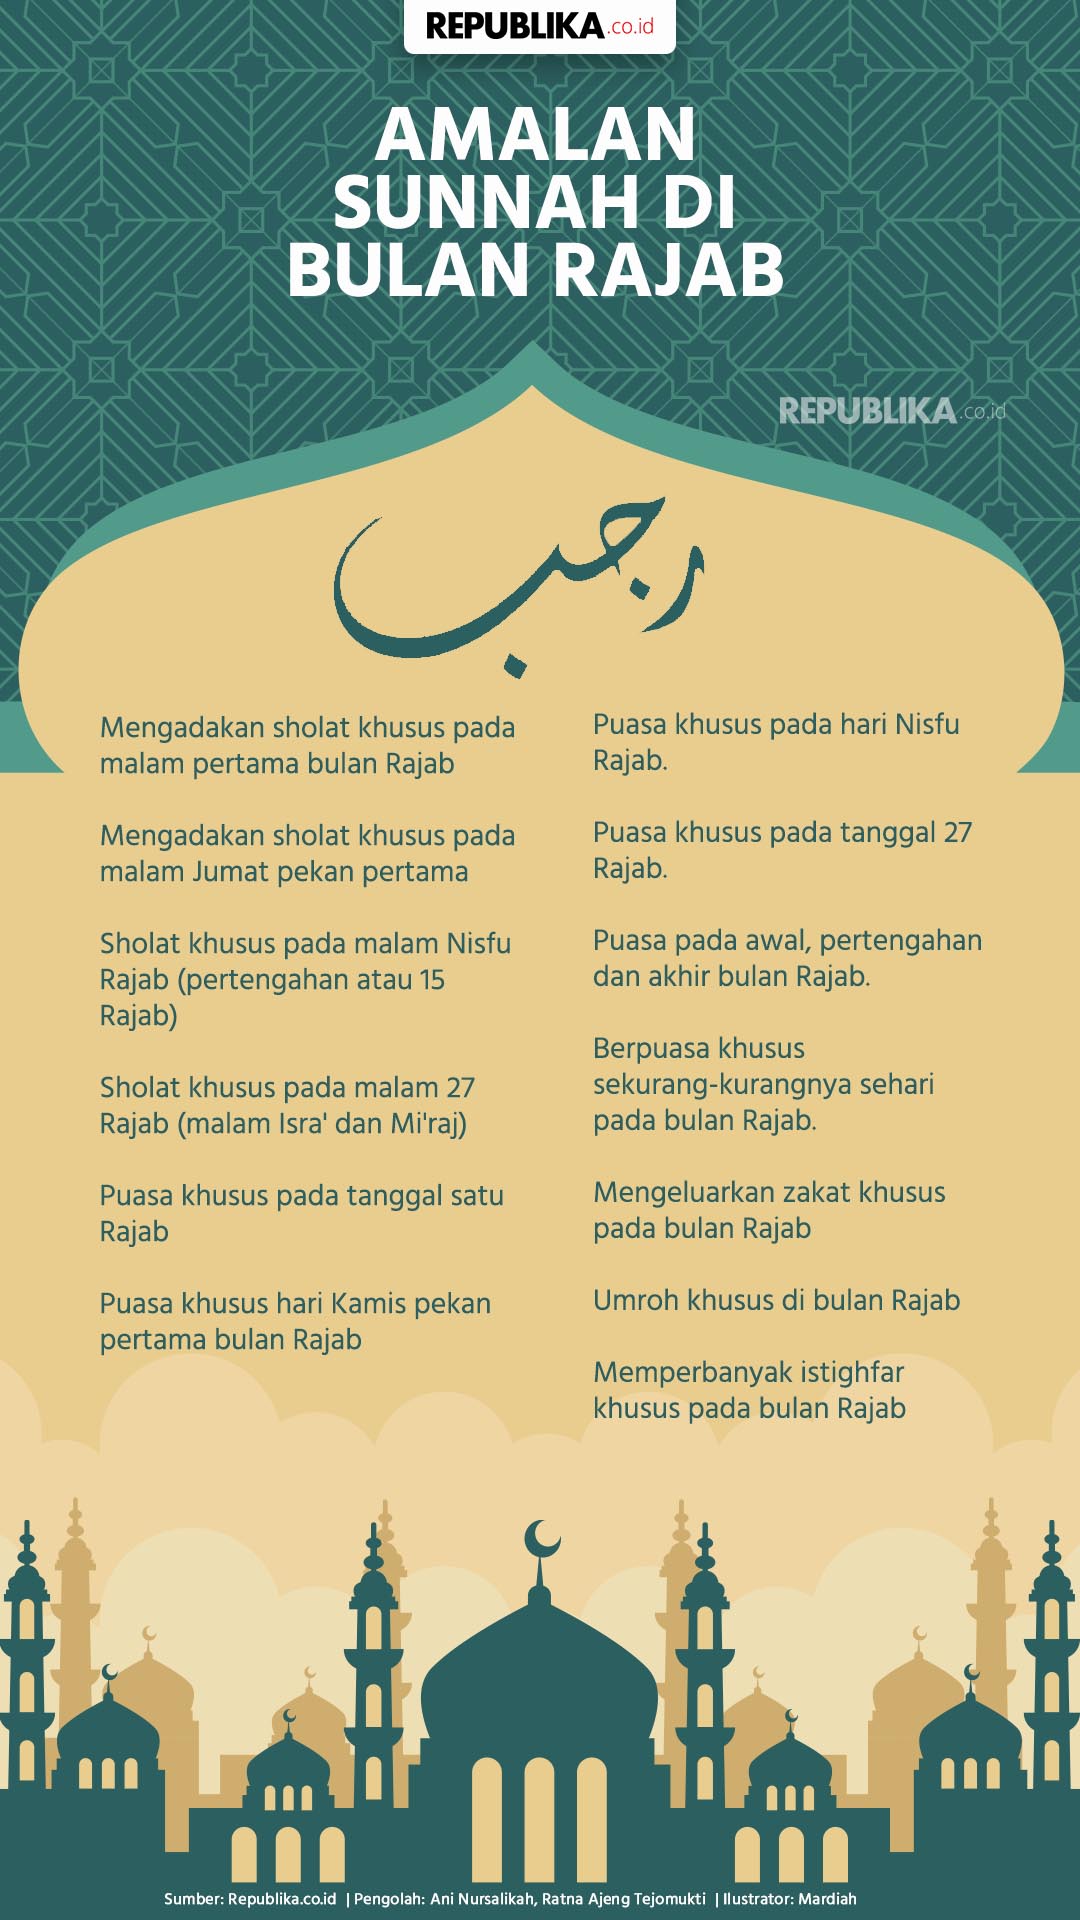 REPUBLIKA.co.id
AMALAN
SUNNAH DI
BULAN RAJAB
REPUBLIKA.co.id
رجب
Mengadakan sholat khusus pada
malam pertama bulan Rajab
Mengadakan sholat khusus pada
malam Jumat pekan pertama
Sholat khusus pada malam Nisfu
Rajab (pertengahan atau 15
Rajab)
Sholat khusus pada malam 27
Rajab (malam Isra' dan Mi'raj)
Puasa khusus pada tanggal satu
Rajab
Puasa khusus hari Kamis pekan
pertama bulan Rajab
Puasa khusus pada hari Nisfu
Rajab.
Puasa khusus pada tanggal 27
Rajab.
Puasa pada awal, pertengahan
dan akhir bulan Rajab.
Berpuasa khusus
sekurang-kurangnya sehari
pada bulan Rajab.
Mengeluarkan zakat khusus
pada bulan Rajab
Umroh khusus di bulan Rajab
Memperbanyak istighfar
khusus pada bulan Rajab
Sumber: Republika.co.id | Pengolah: Ani Nursalikah, Ratna Ajeng Tejomukti | Ilustrator: Mardiah